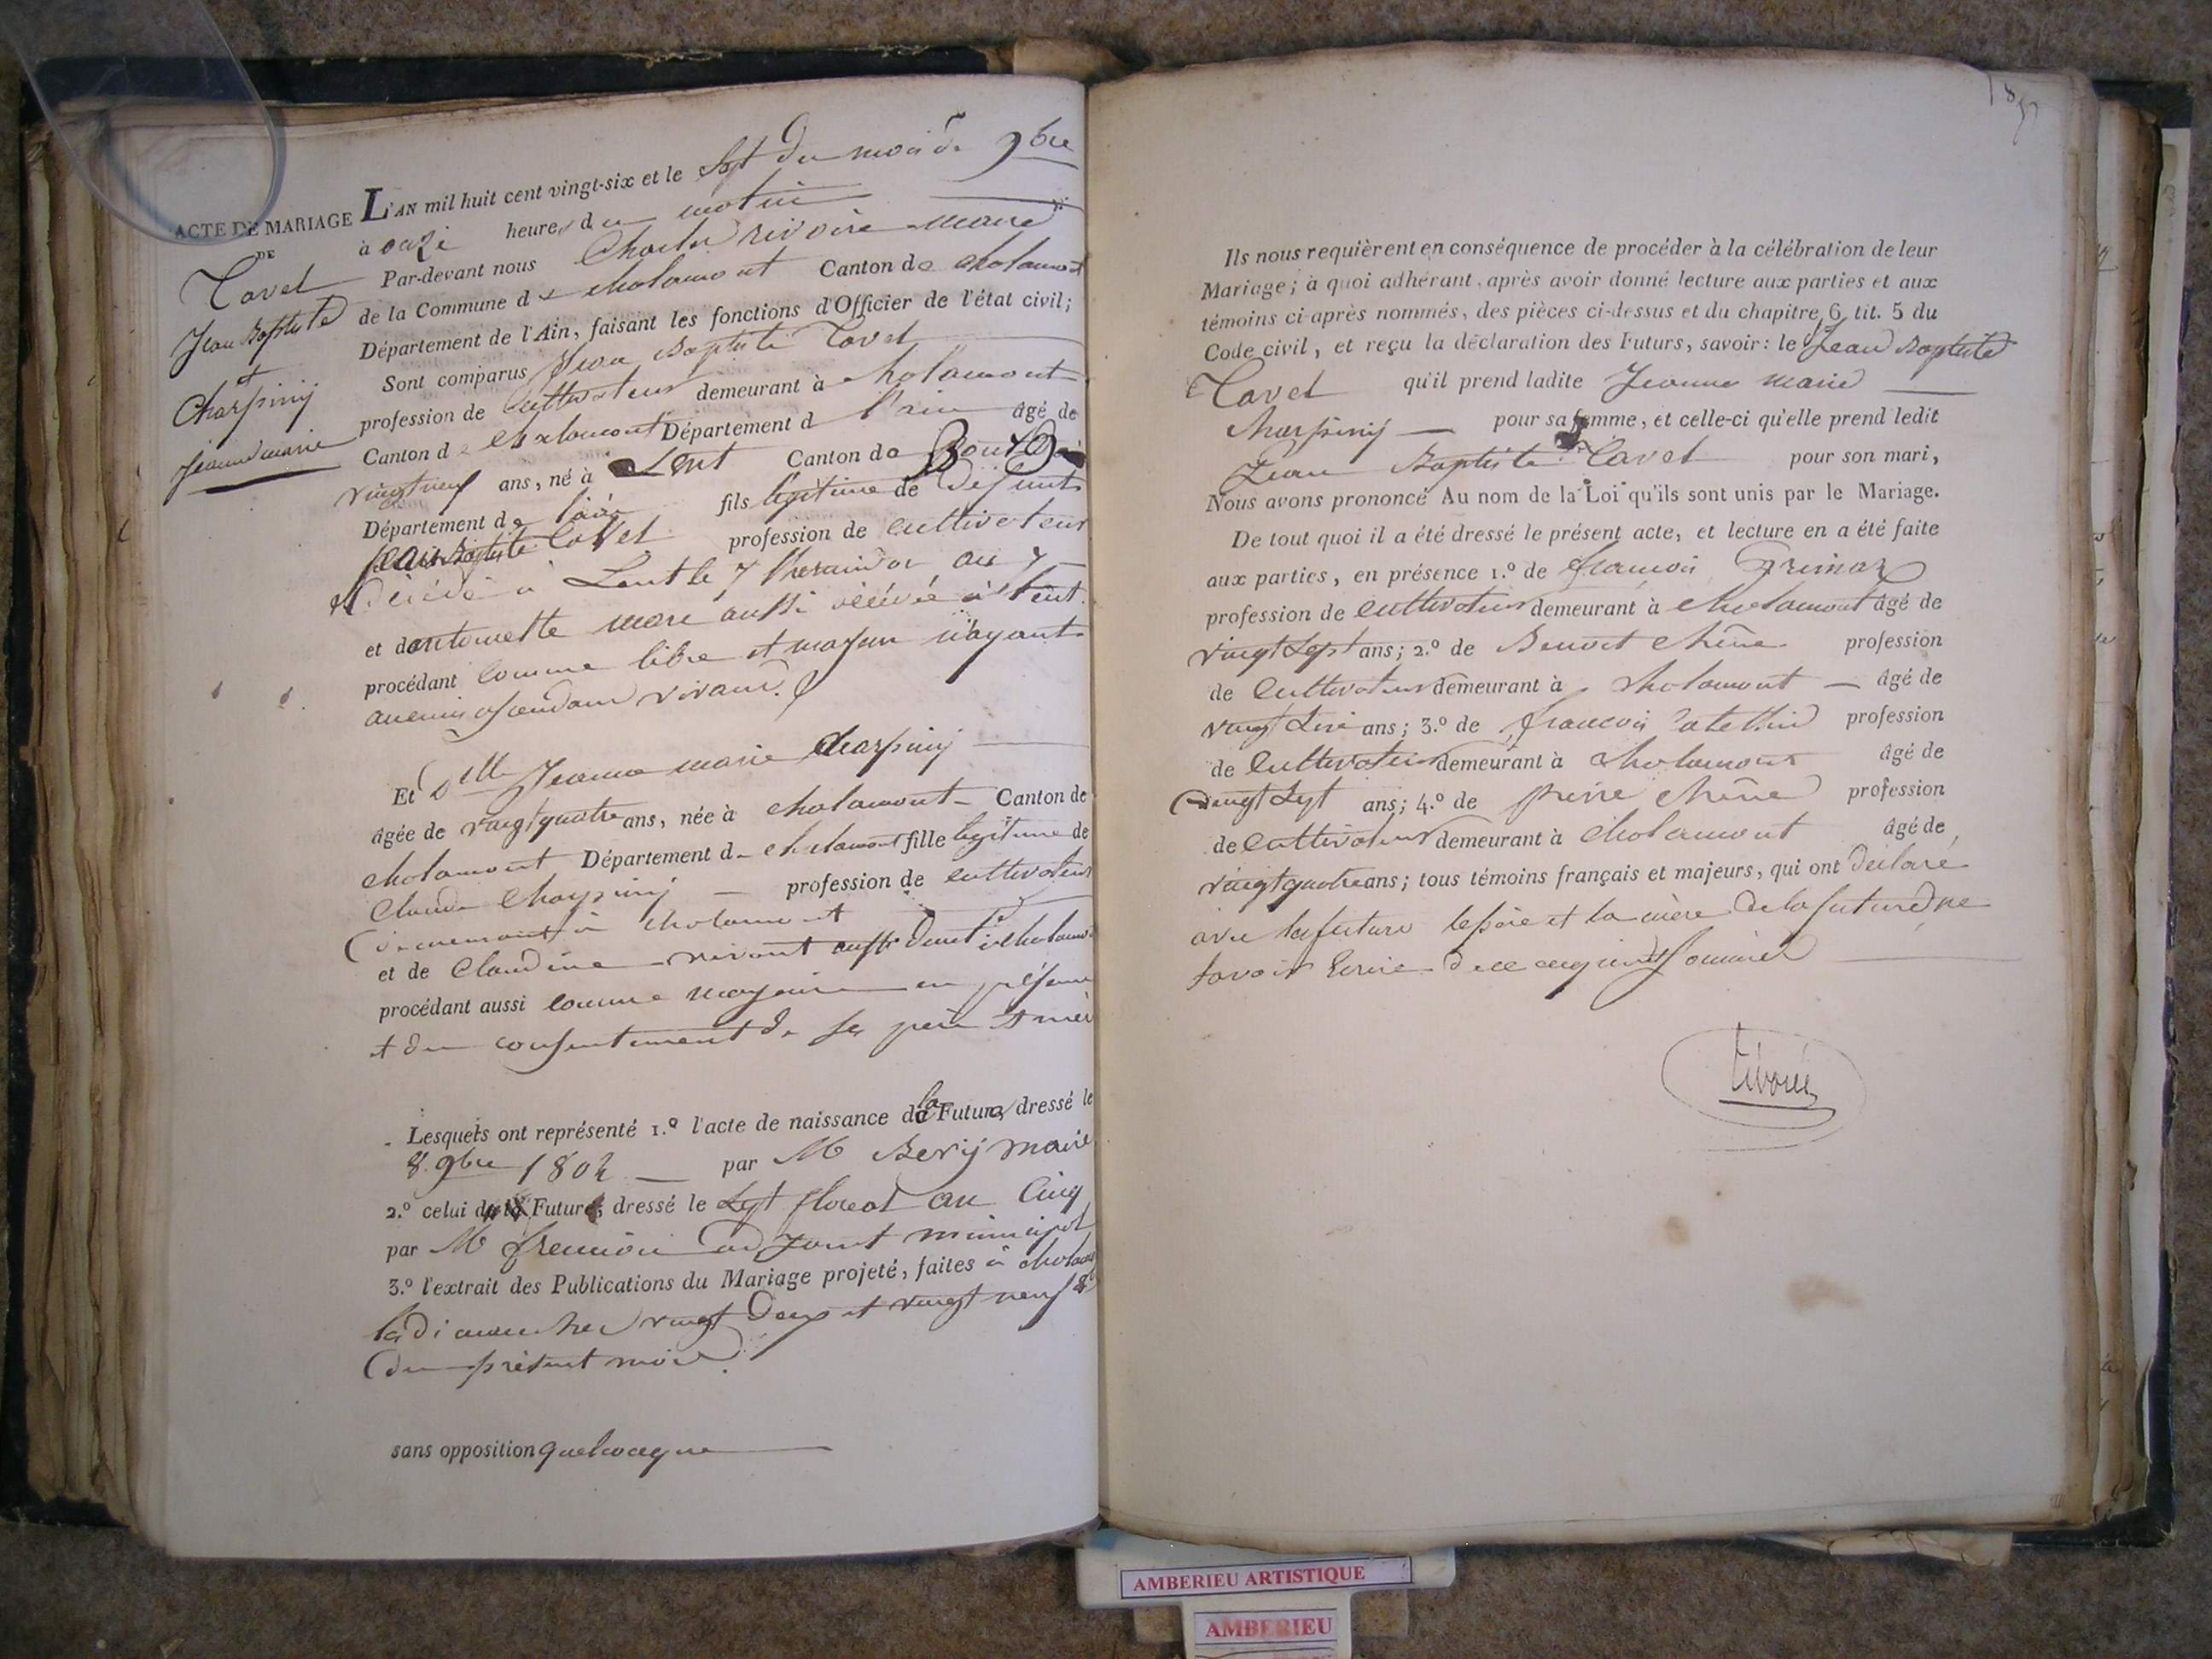 L'AN mil huit cent vingt-six et le sept du mois de 9bre
ACTE DE MARIAGE
DE
à onze heures du matin
Tavel
Jean Baptiste
et
Charpiny
Jeanne marie
Par-devant nous Charles rivoire maire
de la Commune de chalamont Canton de chalamont
Département de l'Ain, faisant les fonctions d'Officier de l'état civil;
Sont comparus Jean Baptiste Tavel
profession de cultivateur demeurant à chalamont
Canton de chalamont Département d l'ain âgé de
vingt neuf ans, né à Lent Canton de Bourg
Département de l'ain fils légitime de défunt
jean Baptiste tavel profession de cultivateur
décédé à Lent le 7 thermidor an 7
et d'antoinette mare aussi décédée à Lent
procédant comme libre et majeur n'ayant
aucuns ascendans vivans.
Et Dlle Jeanne marie Charpiny
âgée de vingt quatre ans, née à chalamont Canton de
chalamont Département d chalamont fille légitime de
Claude Charpiny profession de cultivateur
demeurant à chalamont
et de Claudine vivant aussi à chalamont
procédant aussi comme majeure en présence
et du consentement de ses père et mère
Lesquels ont représenté 1.º l'acte de naissance de la Future dressé le
8 9bre 1802 par M Bevy maire
2.º celui du Futur, dressé le sept floréal an Cinq
par M adjoint municipal
3.º l'extrait des Publications du Mariage projeté, faites à chalamont
les dimanches vingt deux et vingt neuf 8b
du présent mois.
sans opposition quelconque
Ils nous requièrent en conséquence de procéder à la célébration de leur
Mariage; à quoi adhérant, après avoir donné lecture aux parties et aux
témoins ci-après nommés, des pièces ci-dessus et du chapitre 6 tit. 5 du
Code civil, et reçu la déclaration des Futurs, savoir: le Jean Baptiste
Tavel qu'il prend ladite Jeanne marie
Charpiny pour sa femme, et celle-ci qu'elle prend ledit
Jean Baptiste Tavel pour son mari,
Nous avons prononcé Au nom de la Loi qu'ils sont unis par le Mariage.
De tout quoi il a été dressé le présent acte, et lecture en a été faite
aux parties, en présence 1.º de françois
profession de cultivateur demeurant à chalamont âgé de
vingt sept ans; 2.º de Benoit chêne profession
de cultivateur demeurant à chalamont âgé de
vingt six ans; 3.º de françois profession
de cultivateur demeurant à chalamont âgé de
vingt sept ans; 4.º de pierre chêne profession
de cultivateur demeurant à chalamont âgé de
vingt quatre ans; tous témoins français et majeurs, qui ont déclaré
avec les futurs le père et la mère de la future ne
savoir écrire de ce enquis et sommés
rivoire
AMBERIEU ARTISTIQUE
AMBERIEU